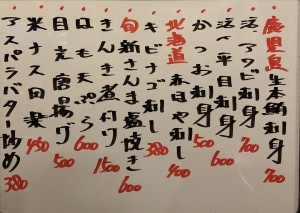 鹿児島 生本鮪刺身 700
活〆アワビ刺身 700
活〆平目刺身 600
かつお刺身 500
北海道 赤目や刺し 400
キビナゴ刺し 380
旬 新さんま塩焼き 600
きんき煮付け 1500
はも天ぷら 600
目々唐揚げ 500
米ナス田楽 450
アスパラバター炒め 380